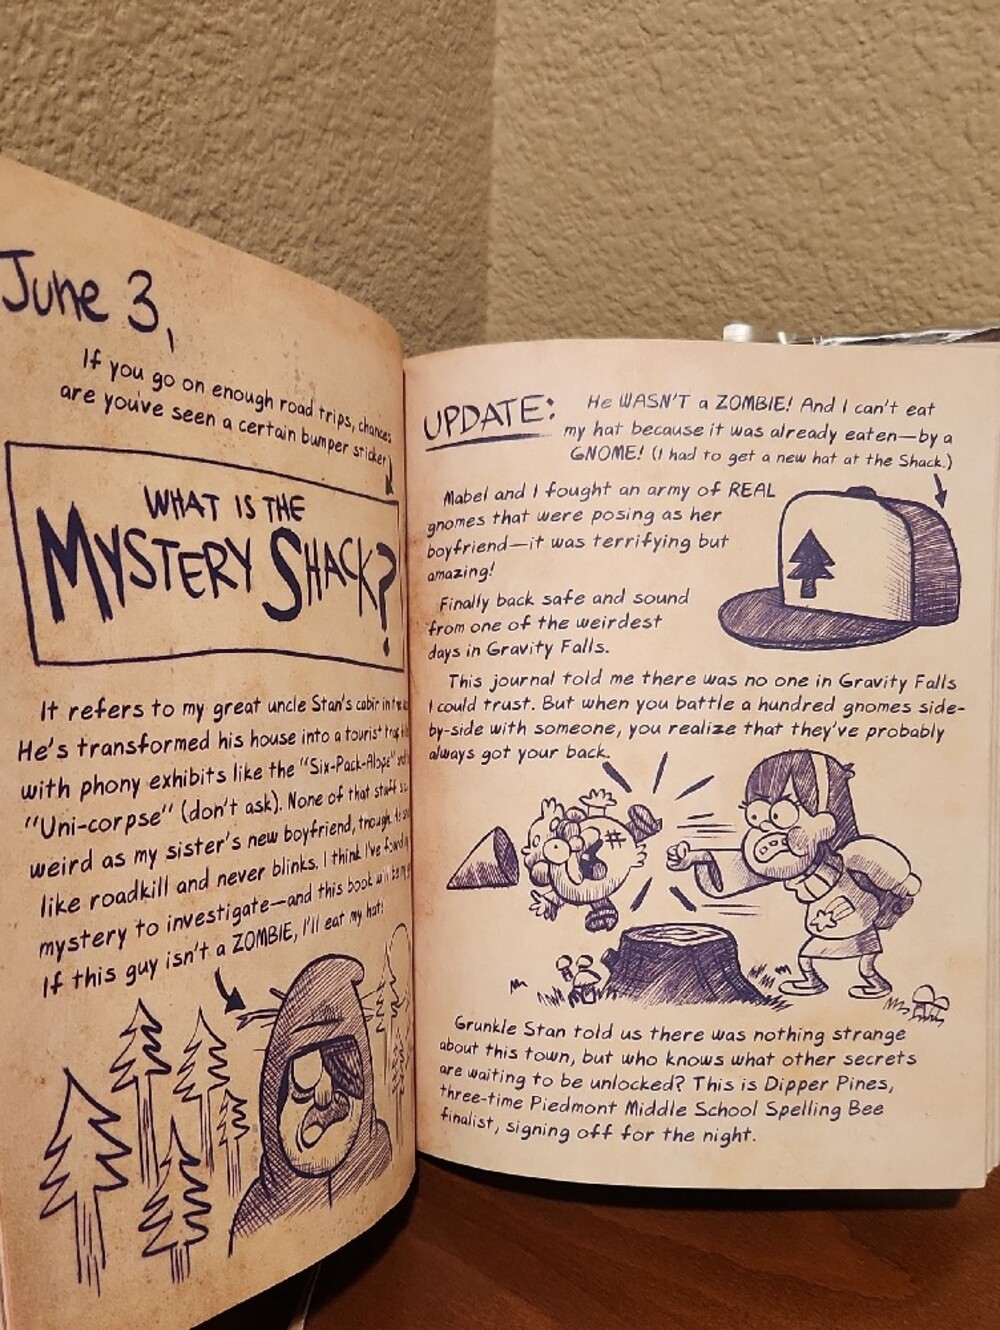 June 3,
If you go on enough road trips, chances
are you've seen a certain bumper sticker
WHAT IS THE
MYSTERY SHACK?
It refers to my great uncle Stan's cabin in
He's transformed his house into a tourist trap
with phony exhibits like the "Six-Pack-Alope"
"Uni-corpse" (don't ask). None of that stuff
weird as my sister's new boyfriend, though.
like roadkill and never blinks. I think I've found
mystery to investigate—and this book will be
If this guy isn't a ZOMBIE, I'll eat my hat!
UPDATE:
He WASN'T a ZOMBIE! And I can't eat
my hat because it was already eaten—by a
GNOME! (I had to get a new hat at the Shack.)
Mabel and I fought an army of REAL
gnomes that were posing as her
boyfriend—it was terrifying but
amazing!
Finally back safe and sound
from one of the weirdest
days in Gravity Falls.
This journal told me there was no one in Gravity Falls
I could trust. But when you battle a hundred gnomes side-
by-side with someone, you realize that they've probably
always got your back.
#
Grunkle Stan told us there was nothing strange
about this town, but who knows what other secrets
are waiting to be unlocked? This is Dipper Pines,
three-time Piedmont Middle School Spelling Bee
finalist, signing off for the night.